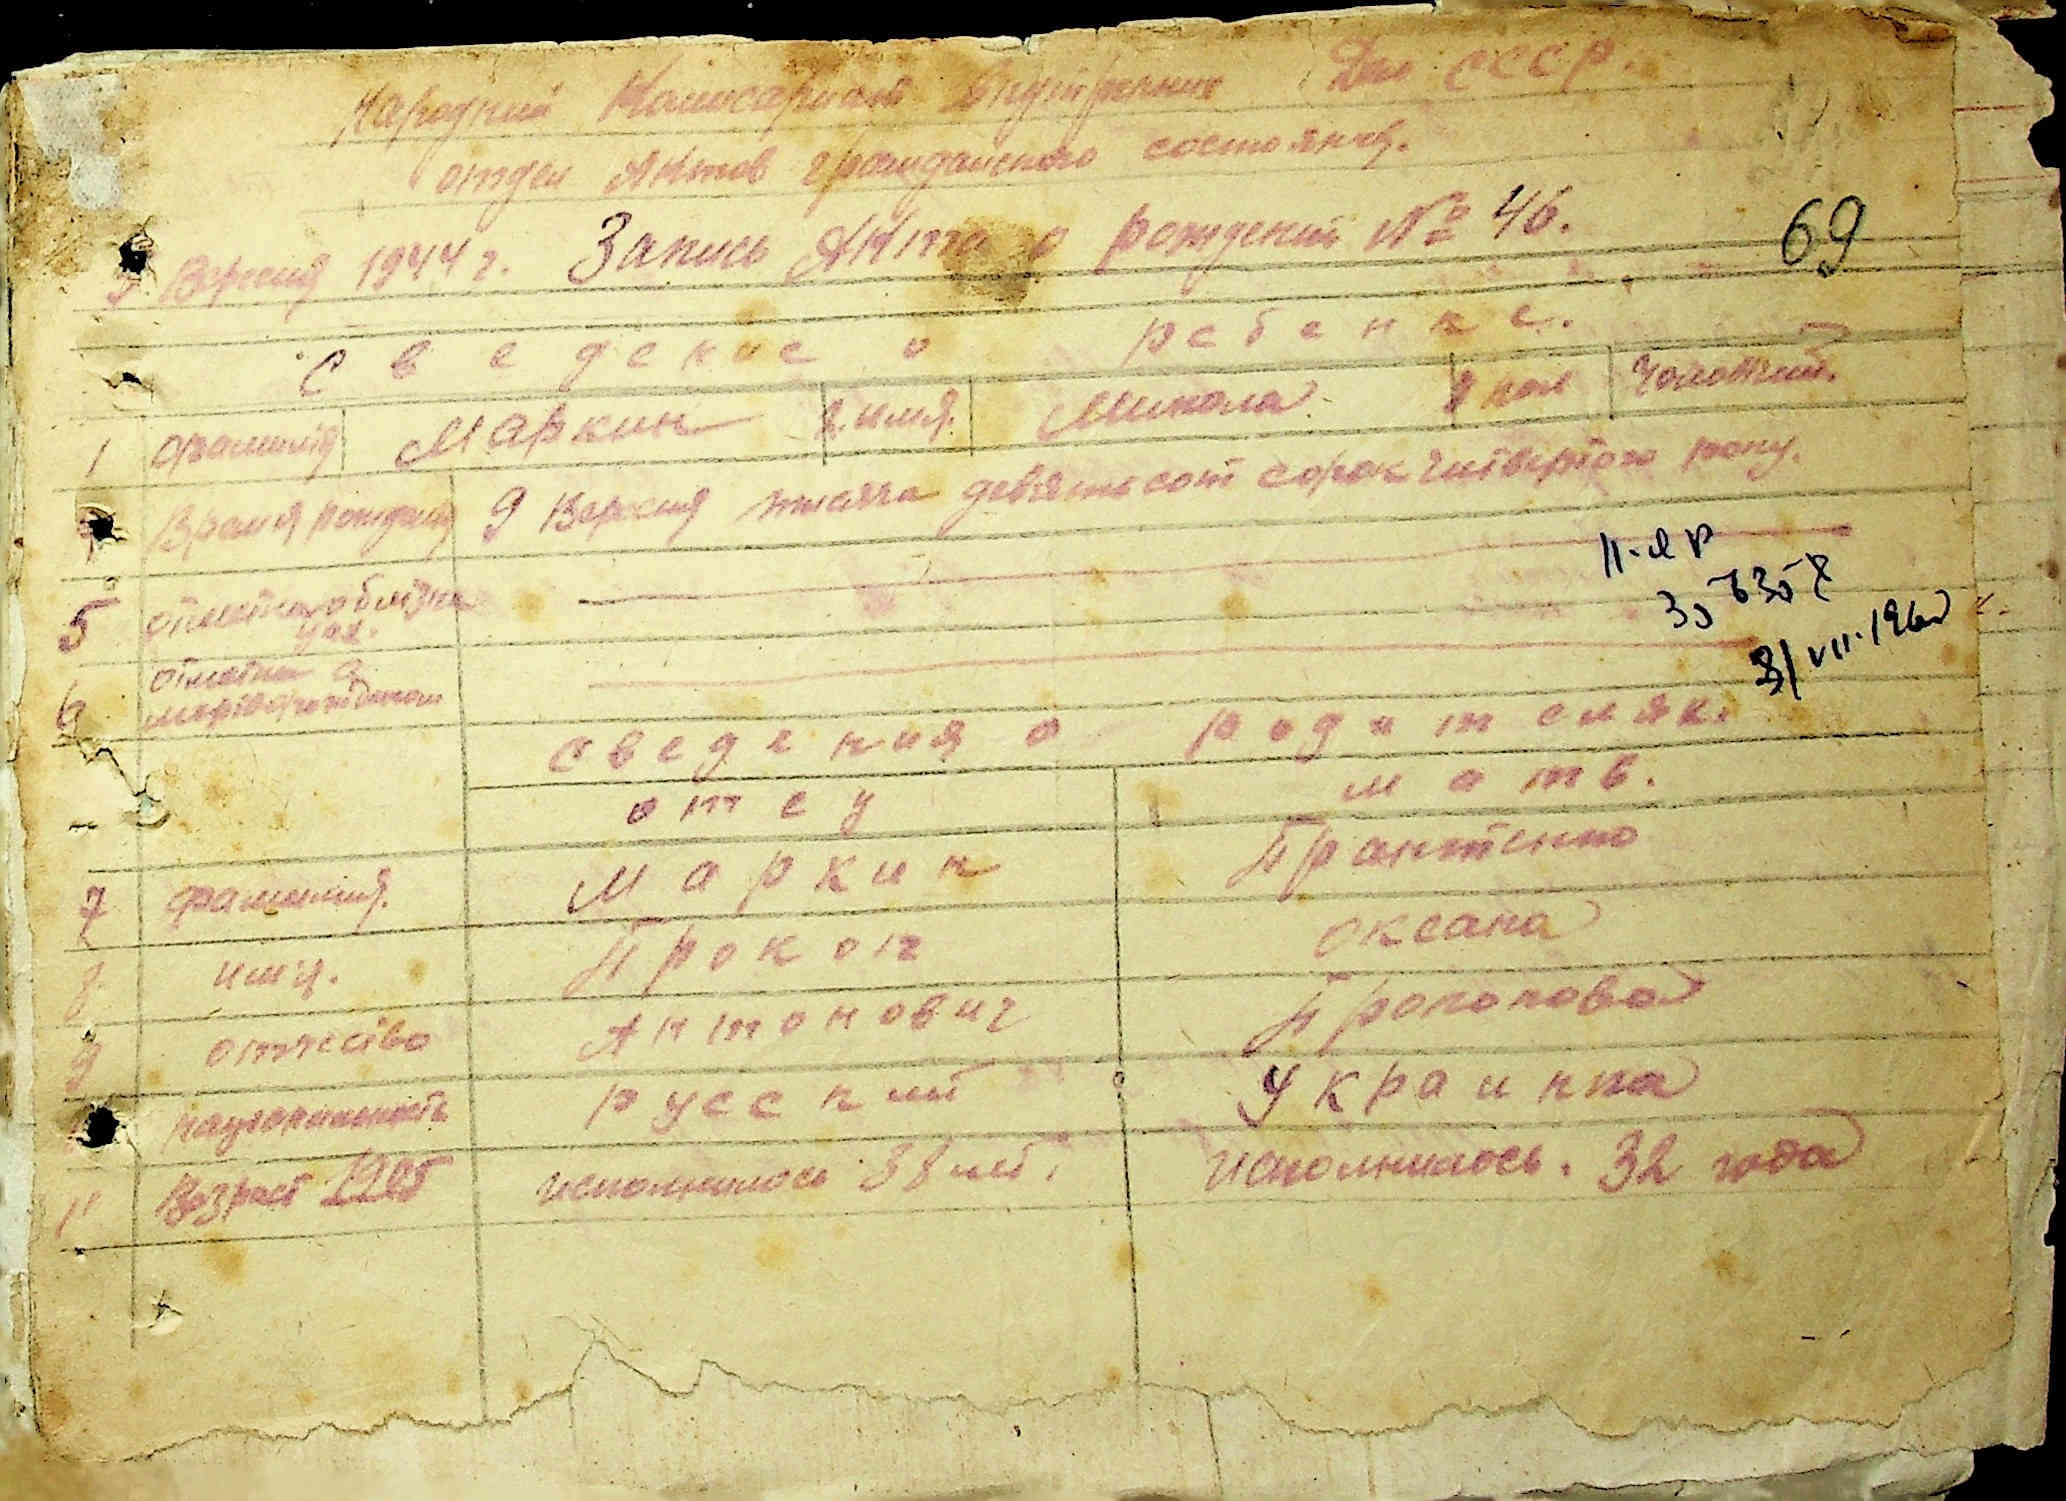 Народний Комисариат Внутренних Дел СССР.
отдел Актов гражданского состоянія.
9 Вересня 1944 г. Запись Акта о рождении № 46.
69
Сведение о ребенке.
1 фамилія Маркин 2. имя. Микола 3 пол Чоловічий.
Время рождения 9 Вересня тисяча девятьсот сорок четвертого року.
5 отметка о близне цах.
6 отметка о мертворожденом
II-ЯР
31/VII-196
Сведения о родителях.
отец мать.
7 фамилия. Маркин
8. имя. Прокоп Оксана
9 отчество Антонович
национальность русский Украинка
11 Возраст 1905 исполнилось 38 лет. исполнилось. 32 года